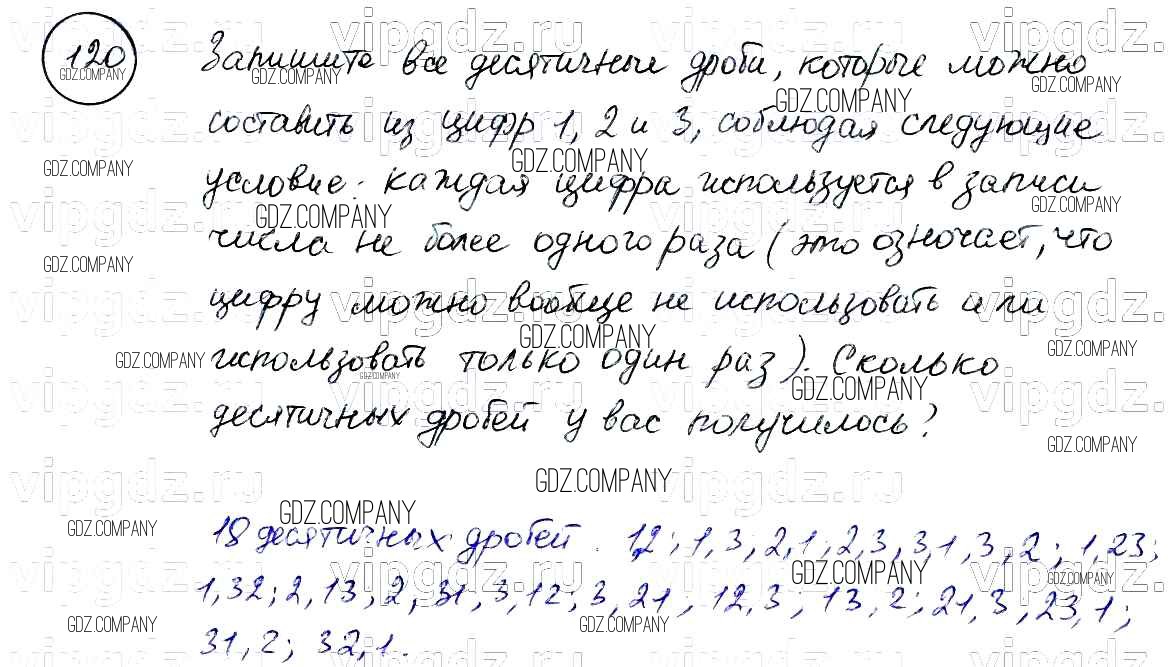 120 Запишите все десятичные дроби, которые можно
составить из цифр 1, 2 и 3, соблюдая следующие
условие: каждая цифра используется в записи
числа не более одного раза (это означает, что
цифру можно вообще не использовать или
использовать только один раз). Сколько
десятичных дробей у вас получилось?
18 десятичных дробей. 1,2; 1,3; 2,1; 2,3; 3,1; 3,2; 1,23;
1,32; 2,13; 2,31; 3,12; 3,21; 12,3; 13,2; 21,3; 23,1;
31,2; 32,1.
vipgdz.ru
GDZ.COMPANY